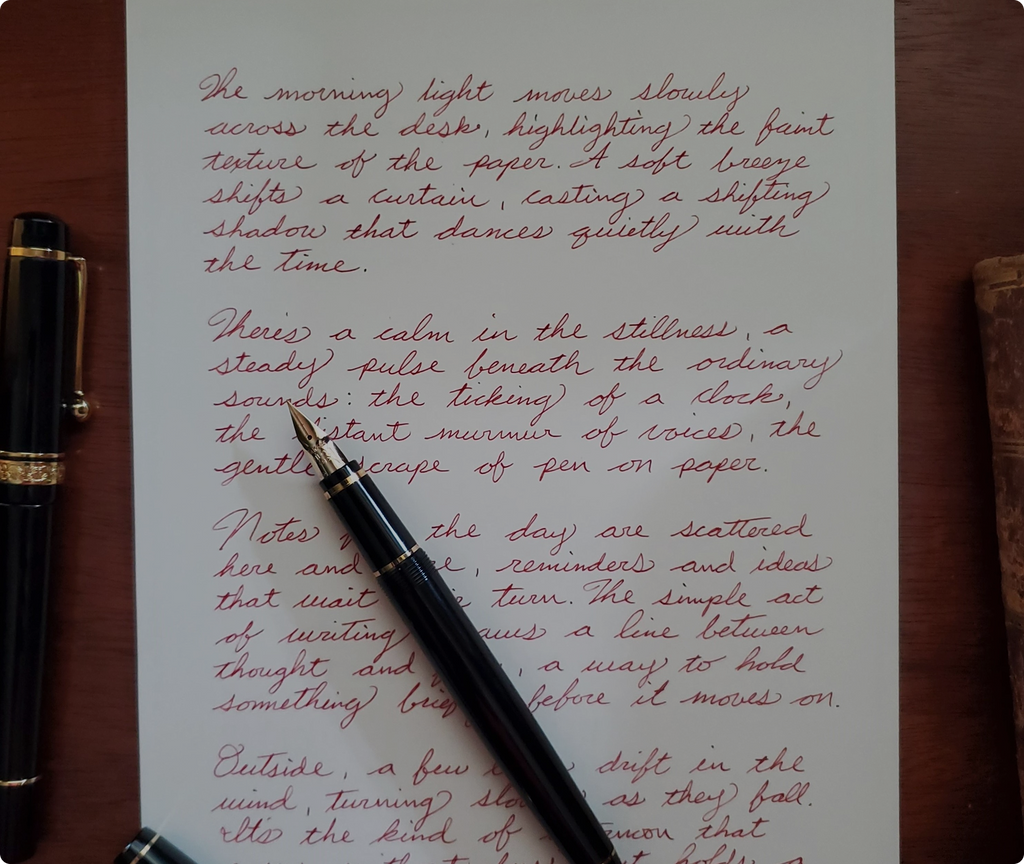 The morning light moves slowly
across the desk, highlighting the faint
texture of the paper. A soft breeze
shifts a curtain, casting a shifting
shadow that dances quietly with
the time.
There's a calm in the stillness, a
steady pulse beneath the ordinary
sounds: the ticking of a clock,
the distant murmur of voices, the
gentle scrape of pen on paper.
Notes the day are scattered
here and , reminders and ideas
that wait turn. The simple act
of writing a line between
thought and , a way to hold
something before it moves on.
Outside, a few drift in the
wind, turning as they fall.
It's the kind of that
holds a